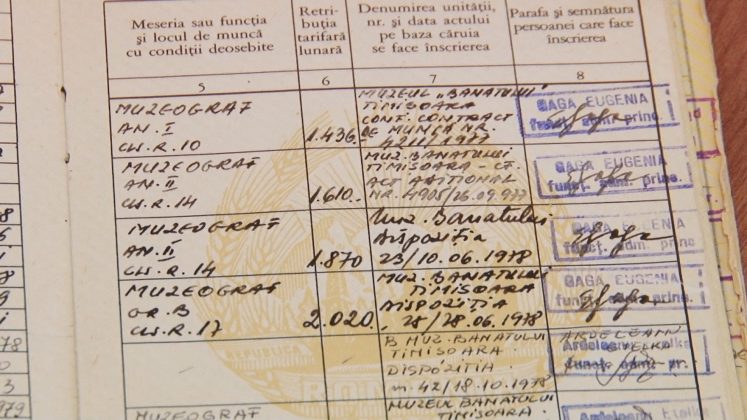 Meseria sau funcția
și locul de muncă
cu condiții deosebite
Retri-
buția
tarifară
lunară
Denumirea unității,
nr. și data actului
pe baza căruia
se face înscrierea
Parafa și semnătura
persoanei care face
înscrierea
5
6
7
8
MUZEOGRAF
AN. I
CW.R.10
1.436.
MUZEUL "BANATULUI"
TIMISOARA
CONF. CONTRACT
DE MUNCA NR.
4211/1977
GAGA EUGENIA
funcț. adm. princ.
MUZEOGRAF
AN. II
CW.R.14
1.610.
MUZ. BANATULUI
TIMISOARA - CF.
ACT ADITIONAL
NR. 4905/26.09.977
GAGA EUGENIA
funcț. adm. princ.
MUZEOGRAF
AN. II
CW.R.14
1.870
Muz. Banatului
Dispoziția
23/10.06.1978
GAGA EUGENIA
funcț. adm. princ.
MUZEOGRAF
GR.B
CW.R.17
2.020
MUZ. BANATULUI
TIMISOARA
DISPOZIȚIA
28/28.06.1978
GAGA EUGENIA
funcț. adm. princ.
MUZ. BANATULUI
TIMISOARA
DISPOZITIA
42/18.10.1978
ARDELEAN
funcț. adm. pr.
MUZEOGRAF
MUZEUL BANATULUI
TIMISOARA